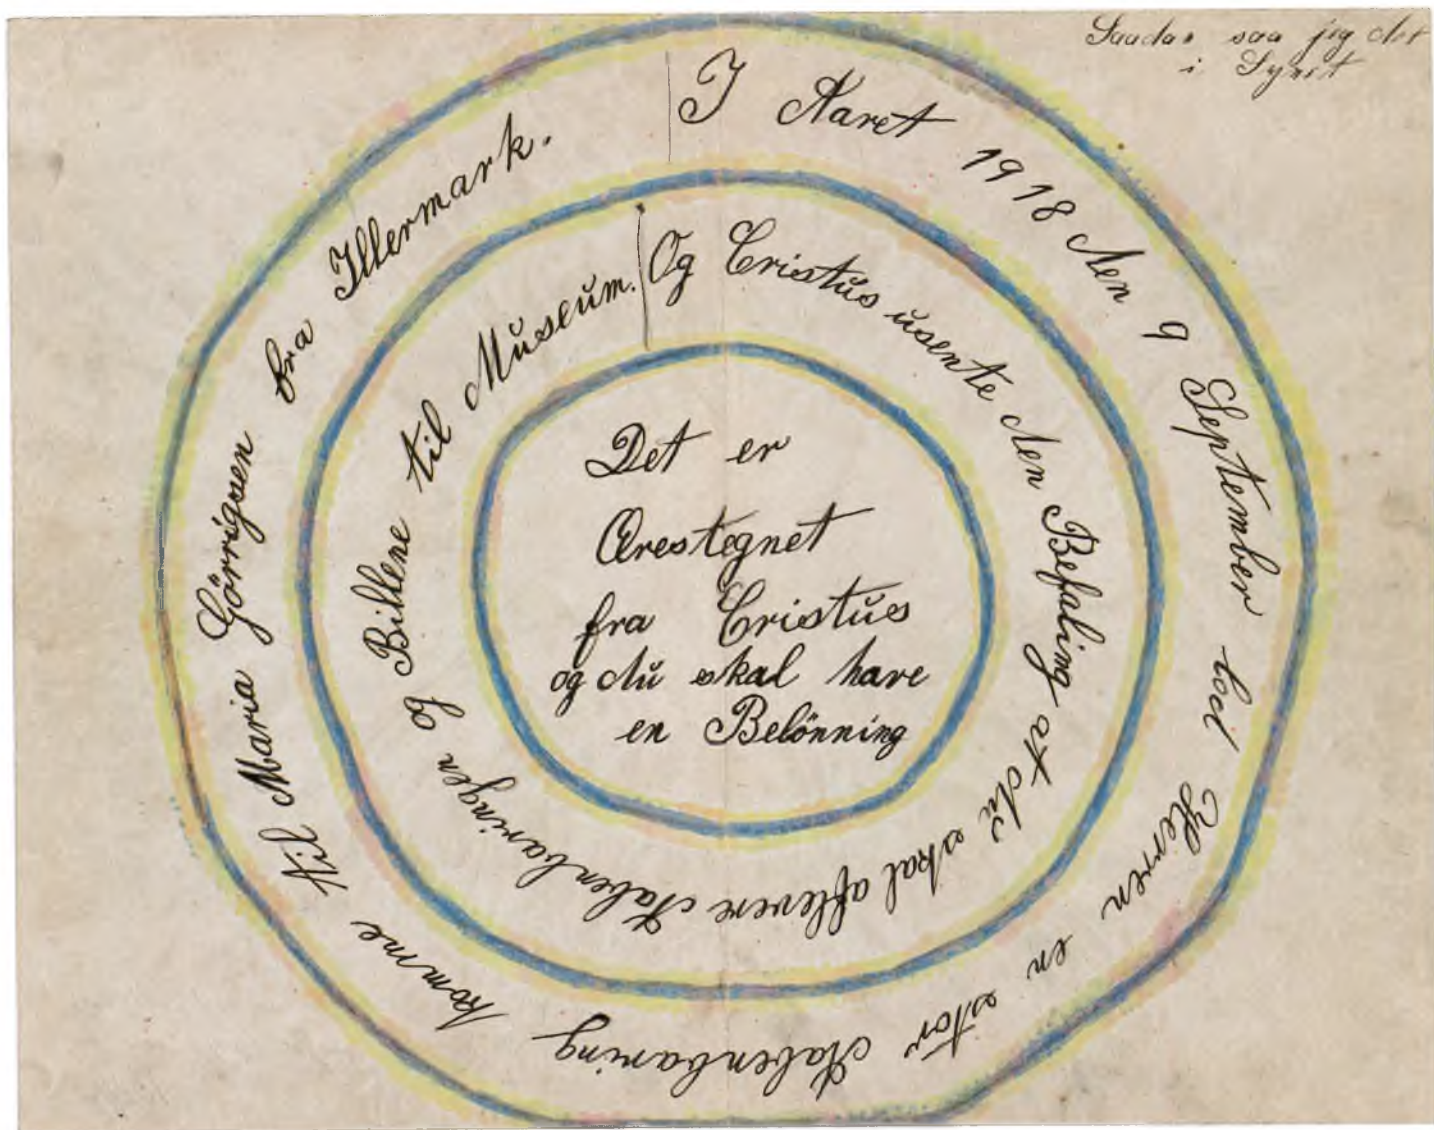 Saadan saa jeg det
i Synet
I Aaret 1918 den 9 September lod Herren en stor Aabenbaring komme til Maria Görrigsen fra Illermark.
Og Cristus usente den Befaling at du skal aflevere Aabenbaringen og Billene til Museum.
Det er
Ærestegnet
fra Cristus
og du skal have
en Belönning